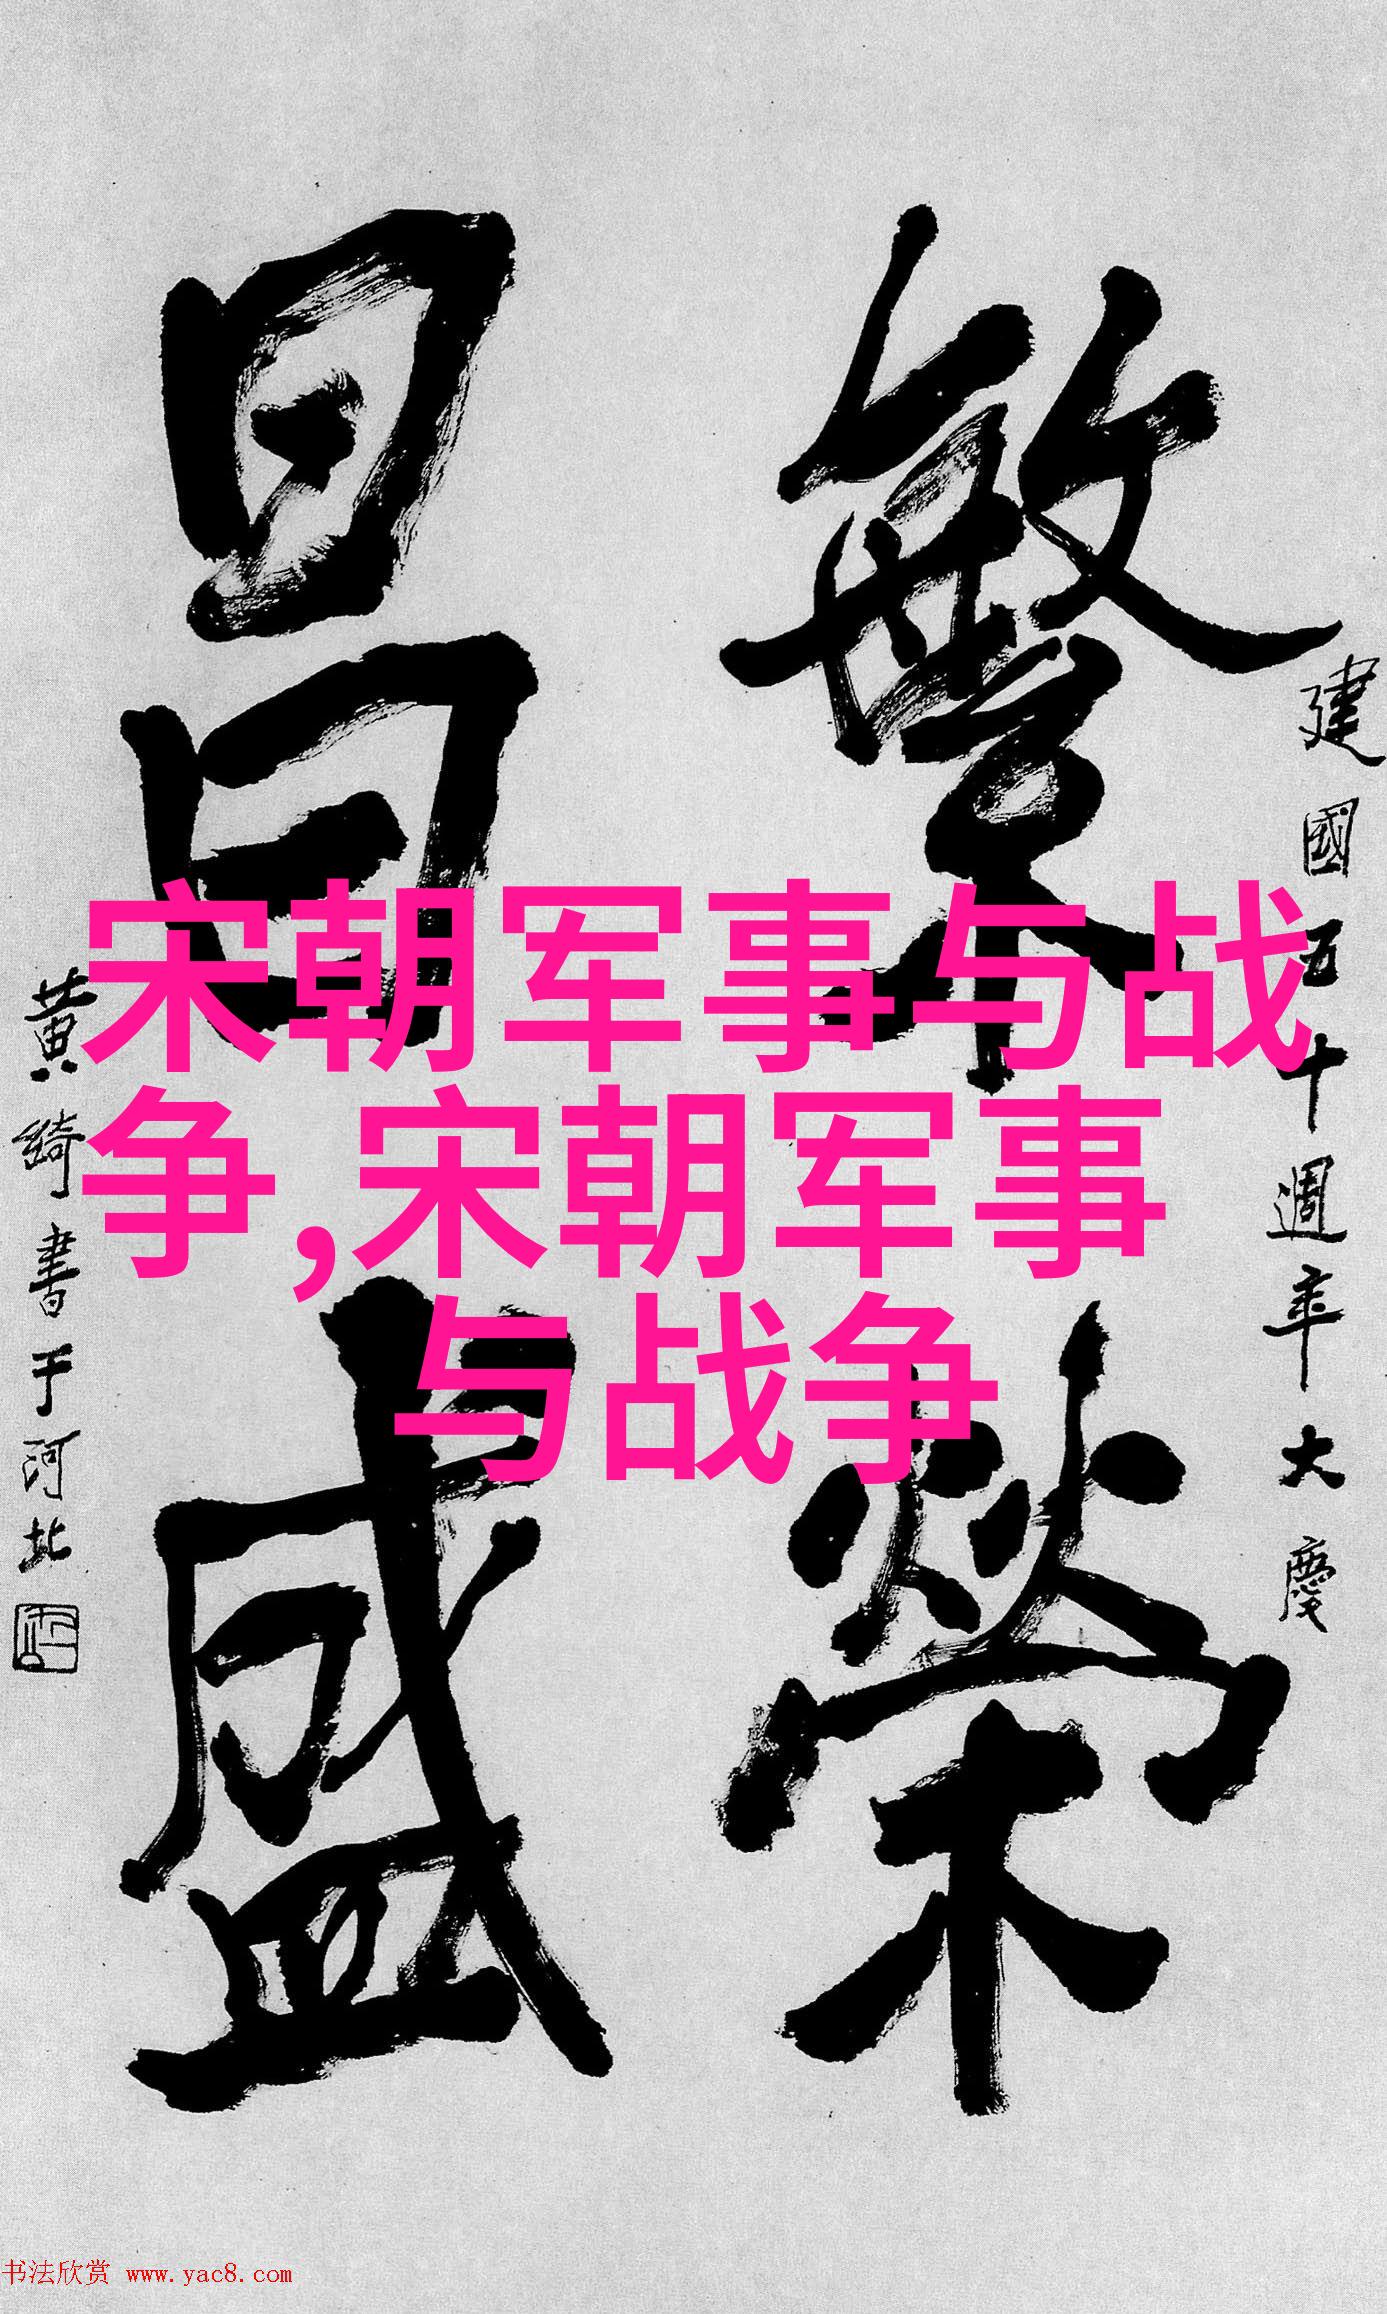 繁榮
昌盛
建國五十週年大慶
黄綺書于河北
宋朝军事与战
争,宋朝军事
与战争
书法欣赏 www.yac8.com